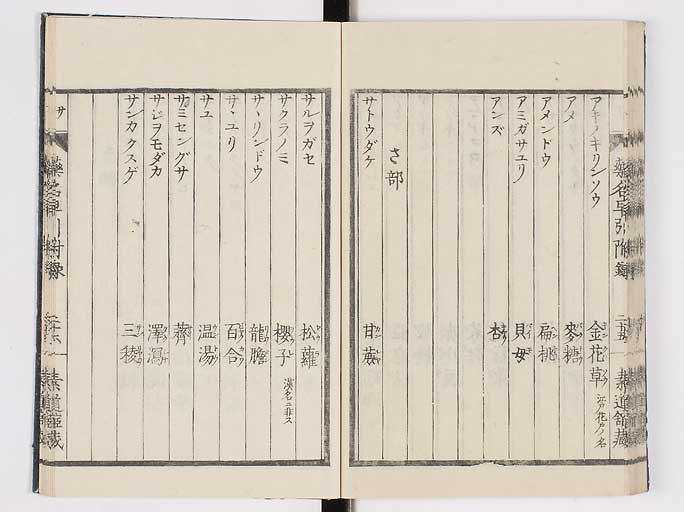 アキノキリンソウ 金花草 江戸花戸ノ名
アメ 麥糖
アメンドウ 扁桃
アミガサユリ 貝母
アンズ 杏
さ部
サトウダケ 甘蔗
サルヲガセ 松蘿
サクラノミ 櫻子 漢名ニ非ス
サヽリンドウ 龍膽
サヽユリ 百合
サユ 温湯
サミセングサ 薺
サジヲモダカ 澤瀉
サンカクスゲ 三稜
サ
藥名早引附録